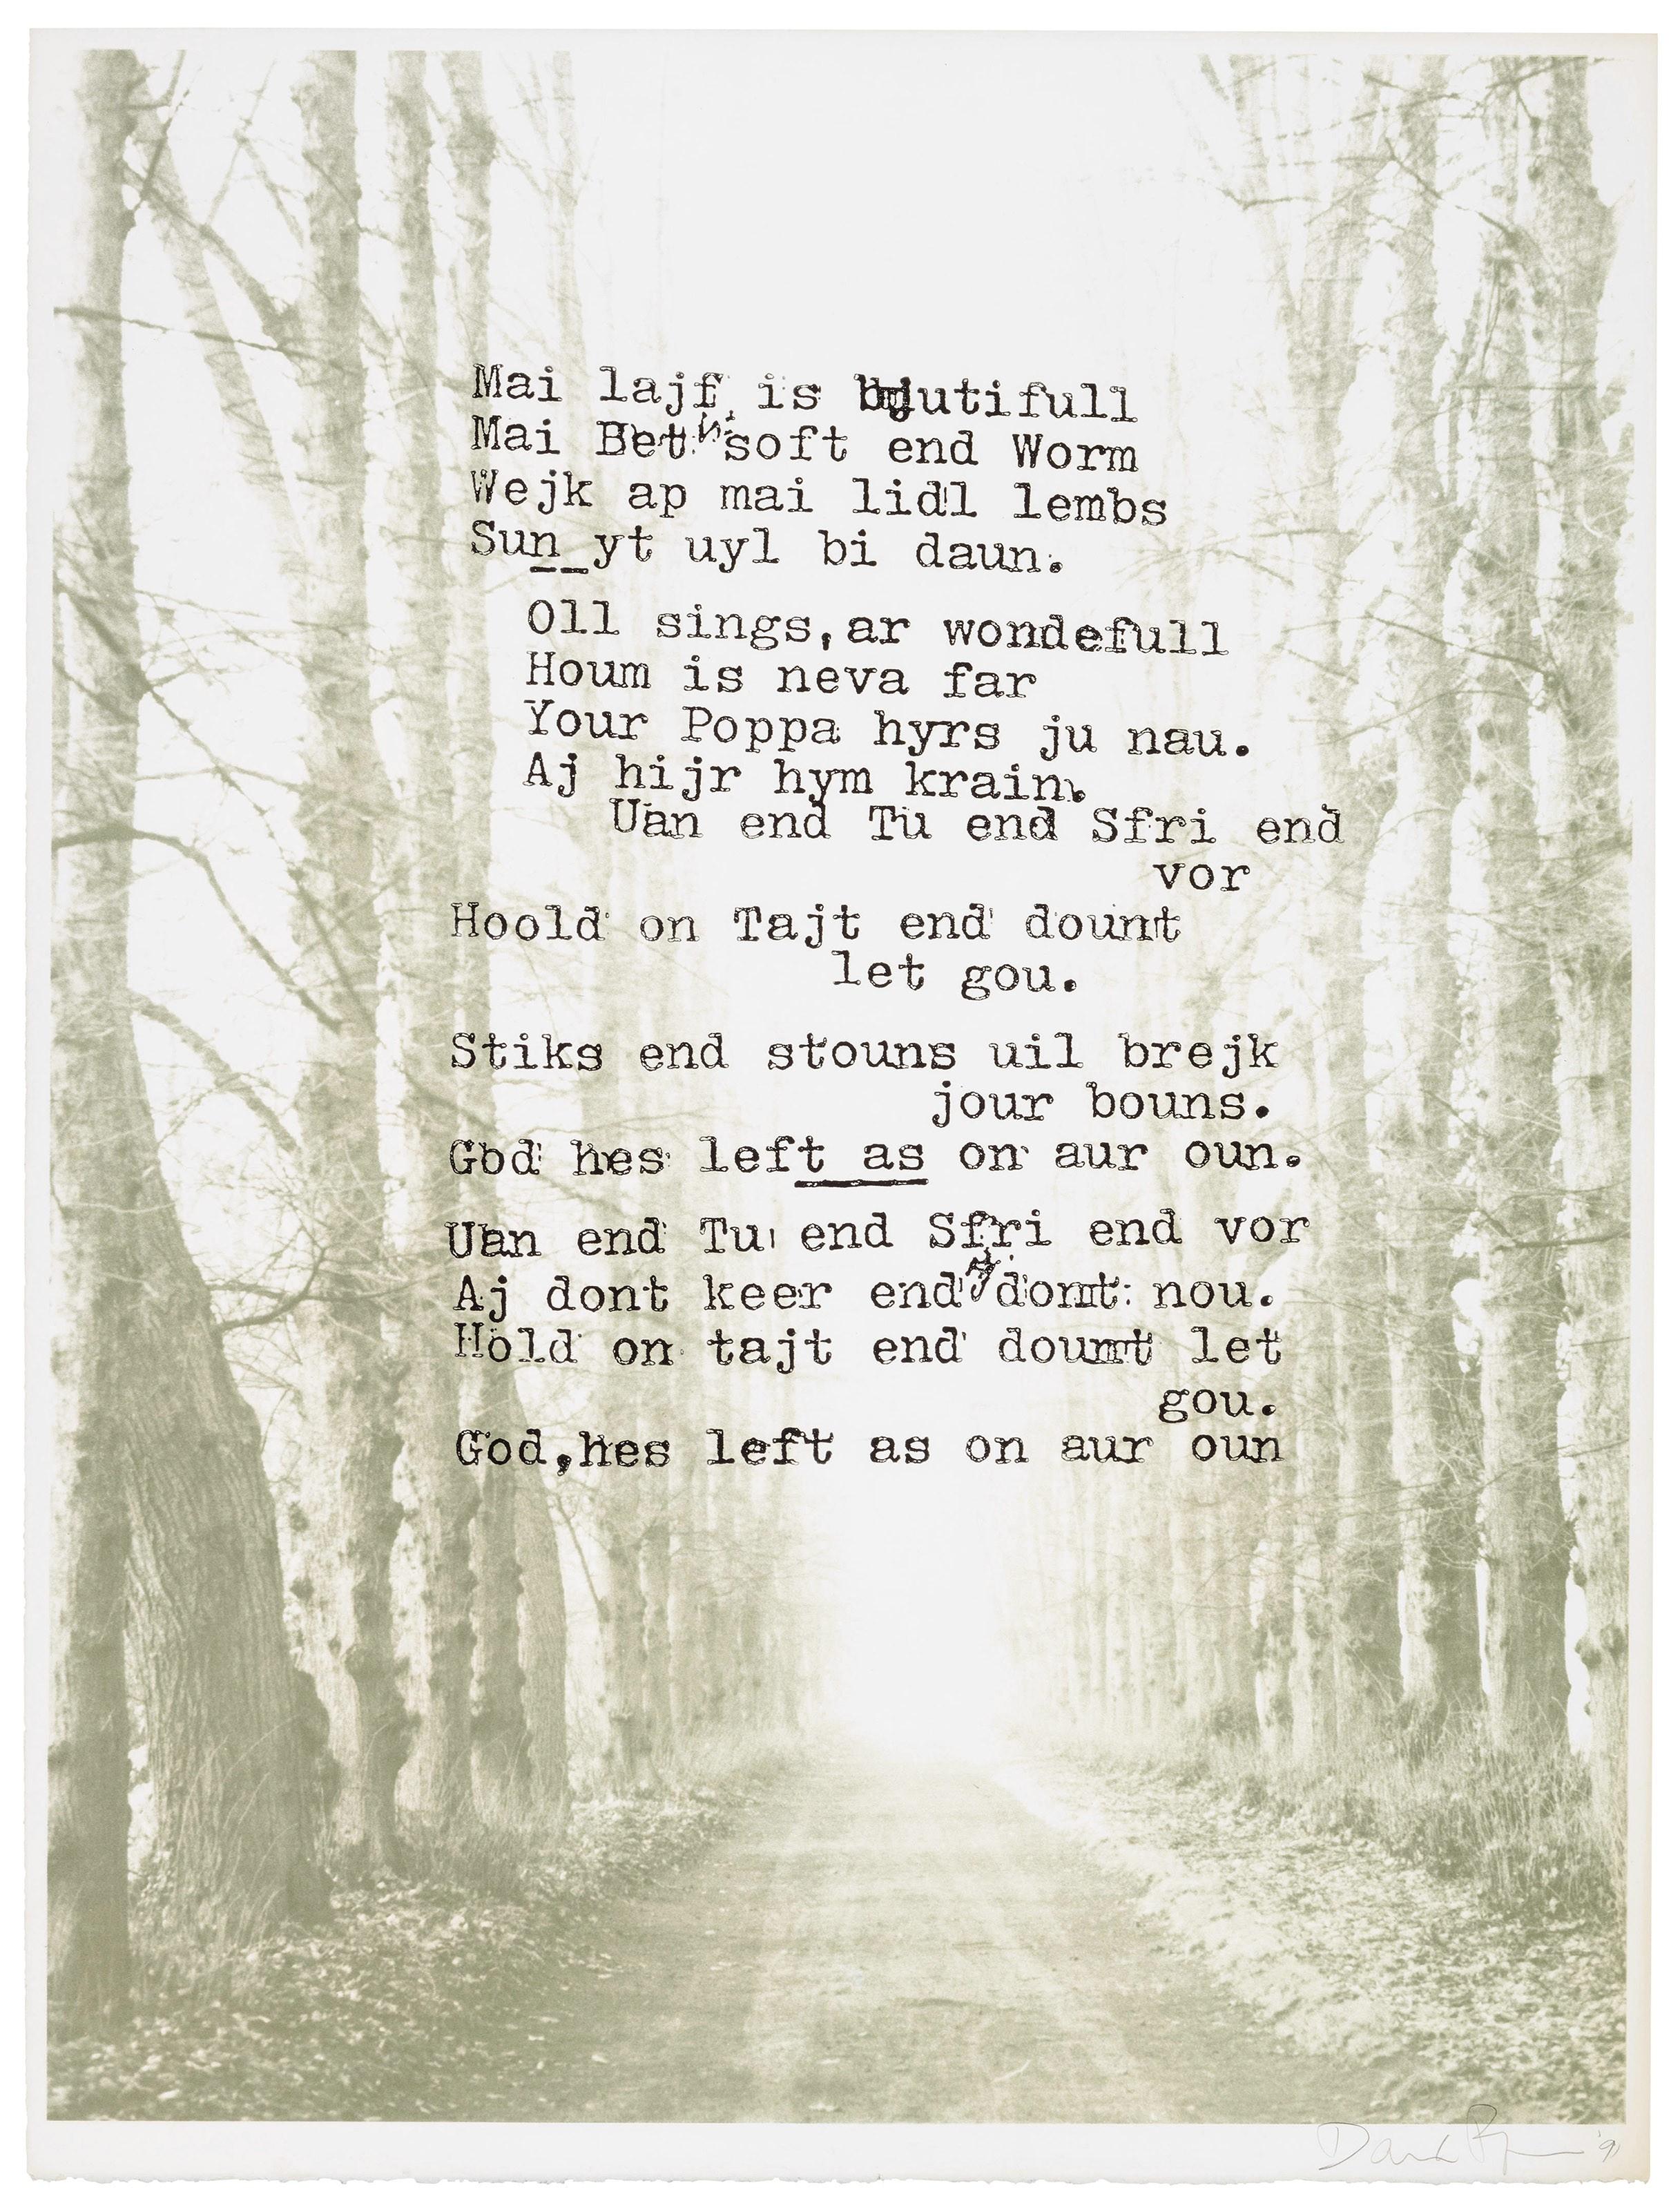 Mai lajf is bjutifull
Mai Bet is soft end Worm
Wejk ap mai lidl lembs
Sun yt uyl bi daun.
Oll sings,ar wondefull
Houm is neva far
Your Poppa hyrs ju nau.
Aj hijr hym krain.
Uan end Tu end Sfri end
vor
Hoold on Tajt end dount
let gou.
Stiks end stouns uil brejk
jour bouns.
God hes left as on aur oun.
Uan end Tu end Sfri end vor
Aj dont keer end dont nou.
Hold on tajt end dount let
gou.
God,hes left as on aur oun